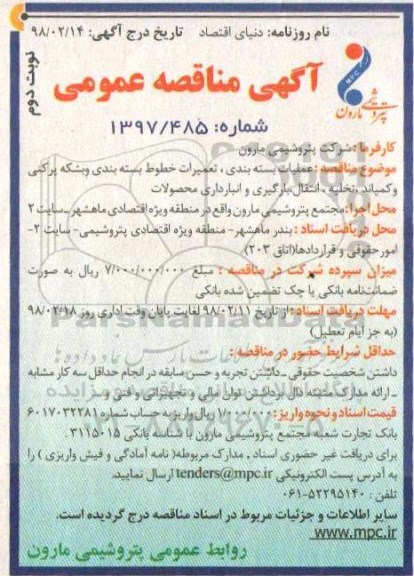 نام روزنامه: دنیای اقتصاد تاریخ درج آگهی: ۹۸/۰۲/۱۴
نوبت دوم
آگهی مناقصه عمومی
پتروشیمی مارون
شماره: ۱۳۹۷/۴۸۵
کارفرما: شرکت پتروشیمی مارون
موضوع مناقصه: عملیات بسته بندی، تعمیرات خطوط بسته بندی وبشکه پرکنی
وکمباند، تخلیه، انتقال، بارگیری و انبارداری محصولات
محل اجرا: مجتمع پتروشیمی مارون واقع در منطقه ویژه اقتصادی ماهشهر ـ سایت ۲
محل دریافت اسناد: بندر ماهشهر- منطقه ویژه اقتصادی پتروشیمی- سایت ۲-
امور حقوقی و قراردادها (اتاق ۲۰۳)
میزان سپرده شرکت در مناقصه: مبلغ ۷/۰۰۰/۰۰۰/۰۰۰ ریال به صورت
ضمانت‌نامه بانکی یا چک تضمین شده بانکی
مهلت دریافت اسناد: از تاریخ ۹۸/۰۲/۱۱ لغایت پایان وقت اداری روز ۹۸/۰۲/۱۸
(به جز ایام تعطیل)
حداقل شرایط حضور در مناقصه:
داشتن شخصیت حقوقی ـ داشتن تجربه و حسن سابقه در انجام حداقل سه کار مشابه
ـ ارائه مدارک مثبته دال برداشتن توان مالی و تجهیزاتی و فنی و ...
قیمت اسناد و نحوه واریز: ۷/۰۰۰/۰۰۰ ریال واریز به حساب شماره ۶۰۱۷۰۳۲۲۸۱
بانک تجارت شعبه مجتمع پتروشیمی مارون با شناسه بانکی ۳۱۱۵۰۱۵.
برای دریافت غیر حضوری اسناد، مدارک مربوطه( نامه آمادگی و فیش واریزی ) را
به آدرس پست الکترونیکی tenders@mpc.ir ارسال نمایید.
تلفن: ۰۶۱-۵۲۲۹۵۱۴۰
سایر اطلاعات و جزئیات مربوط در اسناد مناقصه درج گردیده است.
www.mpc.ir
روابط عمومی پتروشیمی مارون